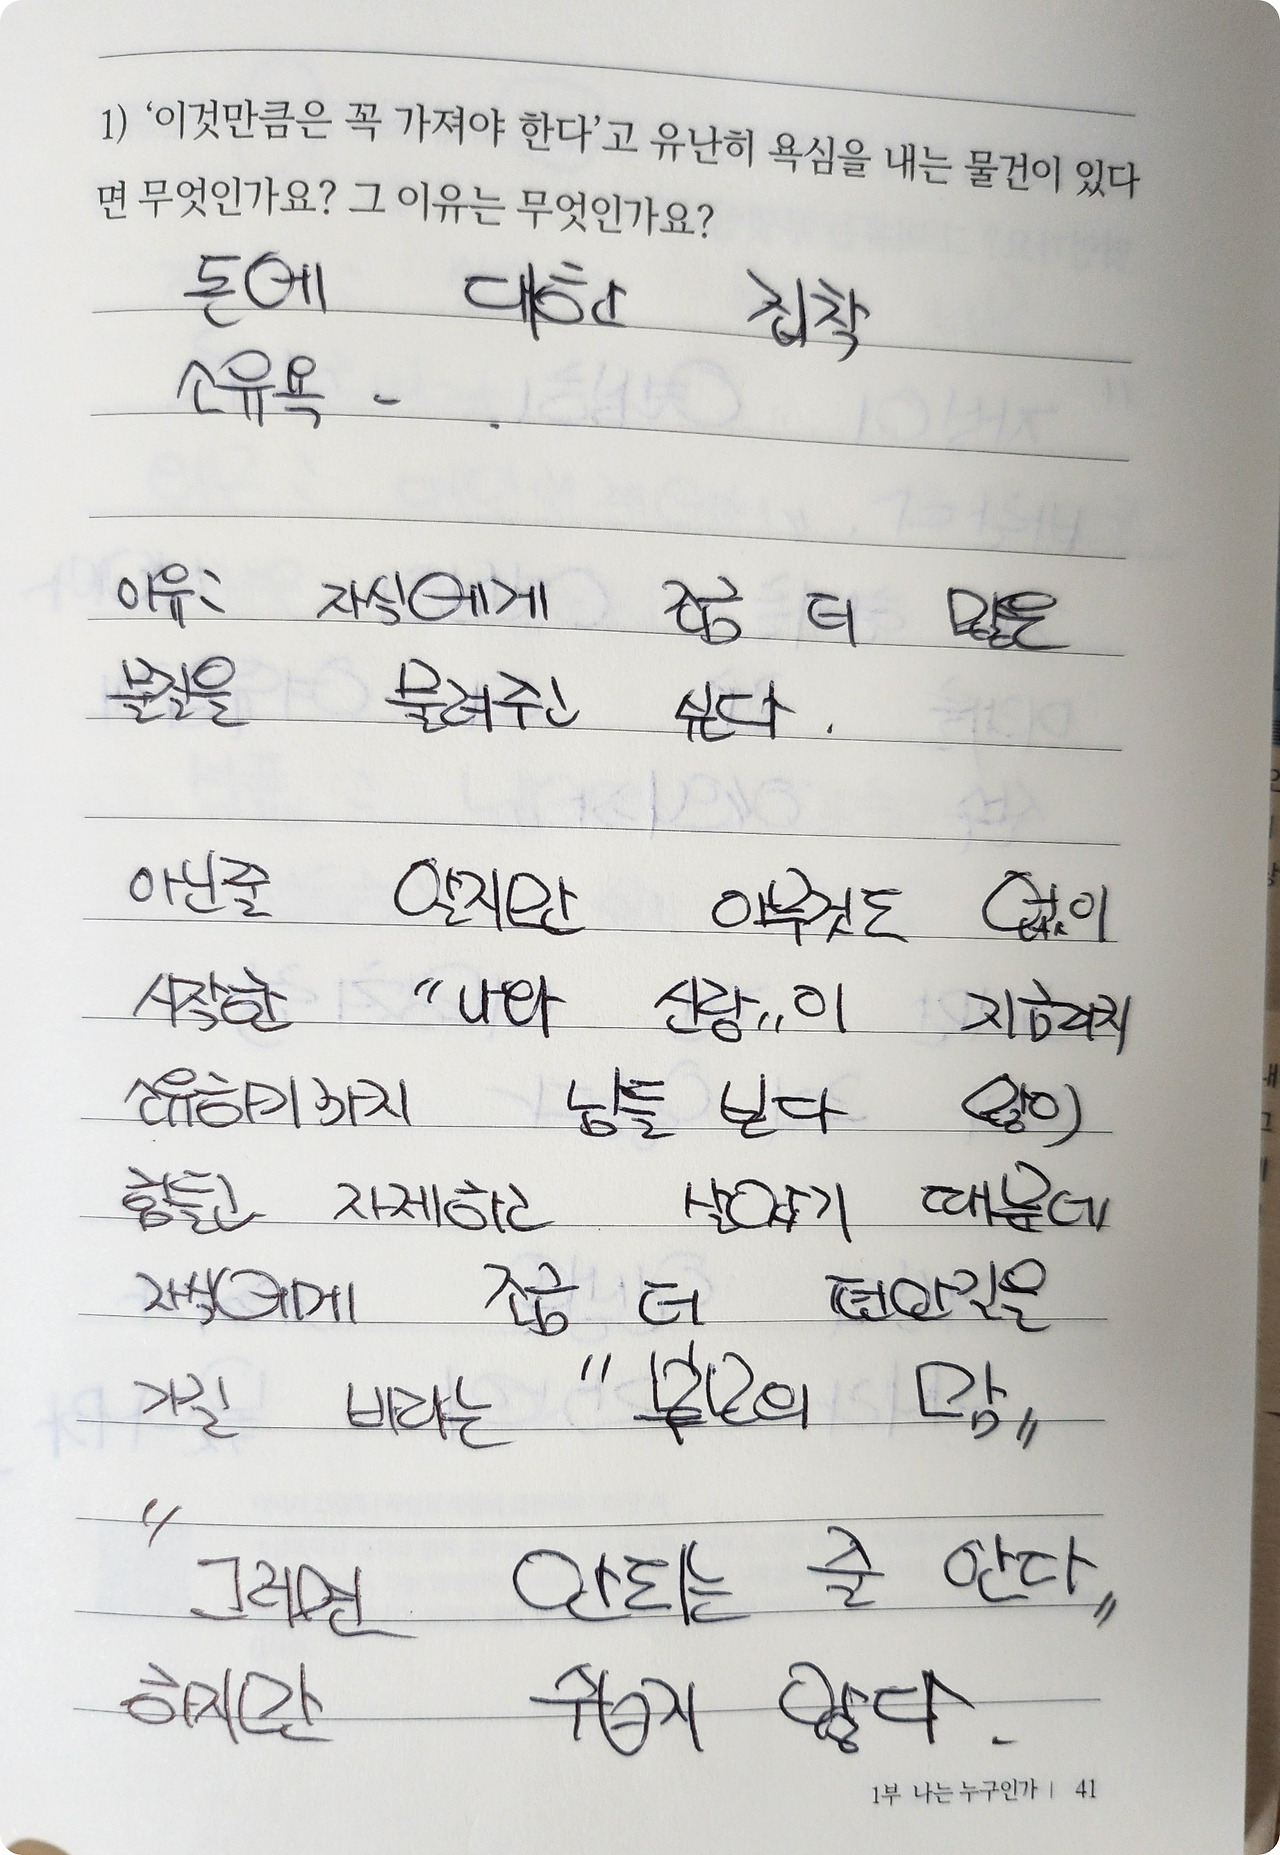 1) ‘이것만큼은 꼭 가져야 한다’고 유난히 욕심을 내는 물건이 있다
면 무엇인가요? 그 이유는 무엇인가요?
돈에 대한 집착
소유욕 - .
이유: 자식에게 조금 더 많은
물질을 물려주고 싶다.
아닌줄 알지만 아무것도 없이
시작한 "나와 신랑"이 지금까지
소유하기까지 남들 보다 많이
힘들고 자제하고 살았기 때문에
자식에게 조금 더 편안길을
가길 바라는 "부모의 맘"
"그러면 안되는 줄 안다"
하지만 쉽지 않다.
1부 나는 누구인가 | 41